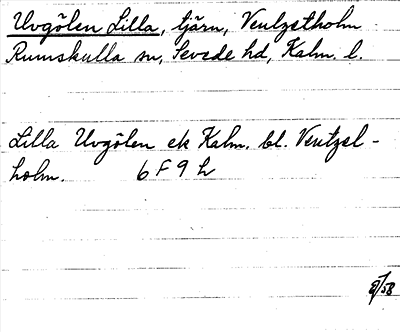 Uvgölen Lilla, tjärn, Ventzetholm
Rumskulla sn, Sevede hd, Kalm. l.
Lilla Uvgölen ek Kalm. bl. Ventzel-
holm. 6 F 9 h
8/58